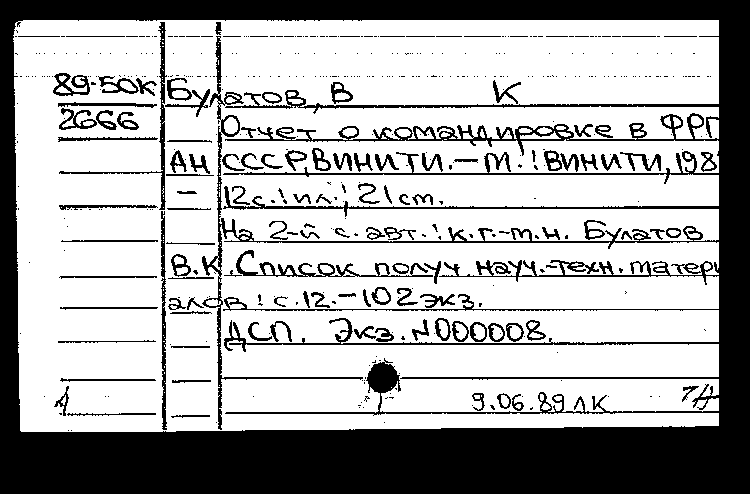 89-50К Булатов, В К
2666 Отчет о командировке в ФРГ
АН СССР, ВИНИТИ.-М.:ВИНИТИ,198
- 12с.:ил.; 21см.
На 2-й с. авт.: к.г.-м.н. Булатов
В.К. Список получ. науч.-техн. матери
алов: с.12.-102экз.
ДСП. Экз.N000008.
9.06.89 ЛК